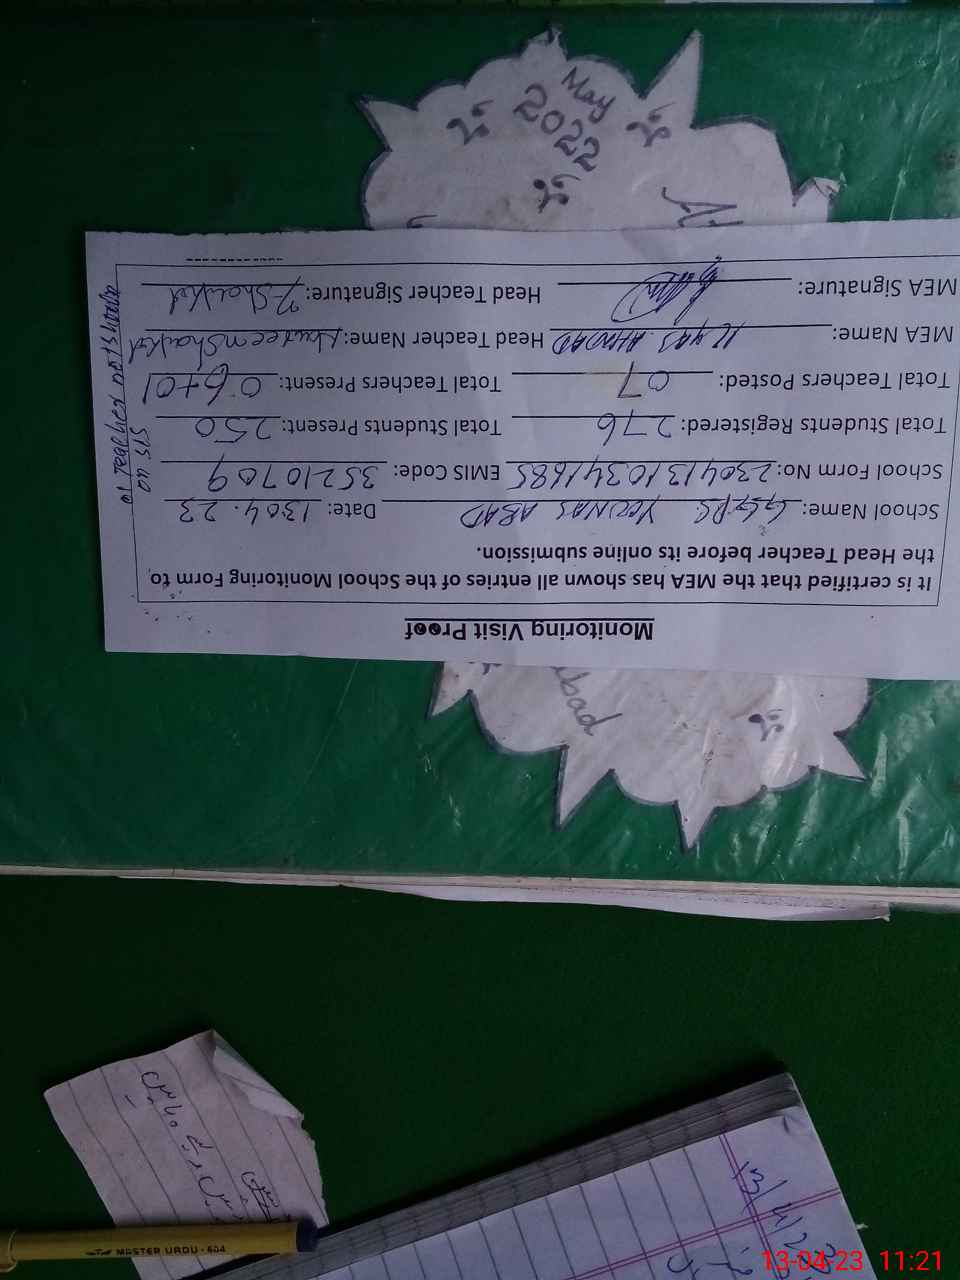 May
2022
bad
Monitoring Visit Proof
It is certified that the MEA has shown all entries of the School Monitoring Form to
the Head Teacher before its online submission.
School Name: GGPS. YOUNAS ABAD Date: 1304.23
School Form No: 23041310341685 EMIS Code: 35210709
Total Students Registered: 276 Total Students Present: 250
Total Teachers Posted: 07 Total Teachers Present: 06+01
MEA Name: ILYAS AHMAD Head Teacher Name: Shauket
MEA Signature: Head Teacher Signature: Shauket
01 Teacher not show
on SIS
MASTER URDU - 604
13/4/23
13-04-23 11:21